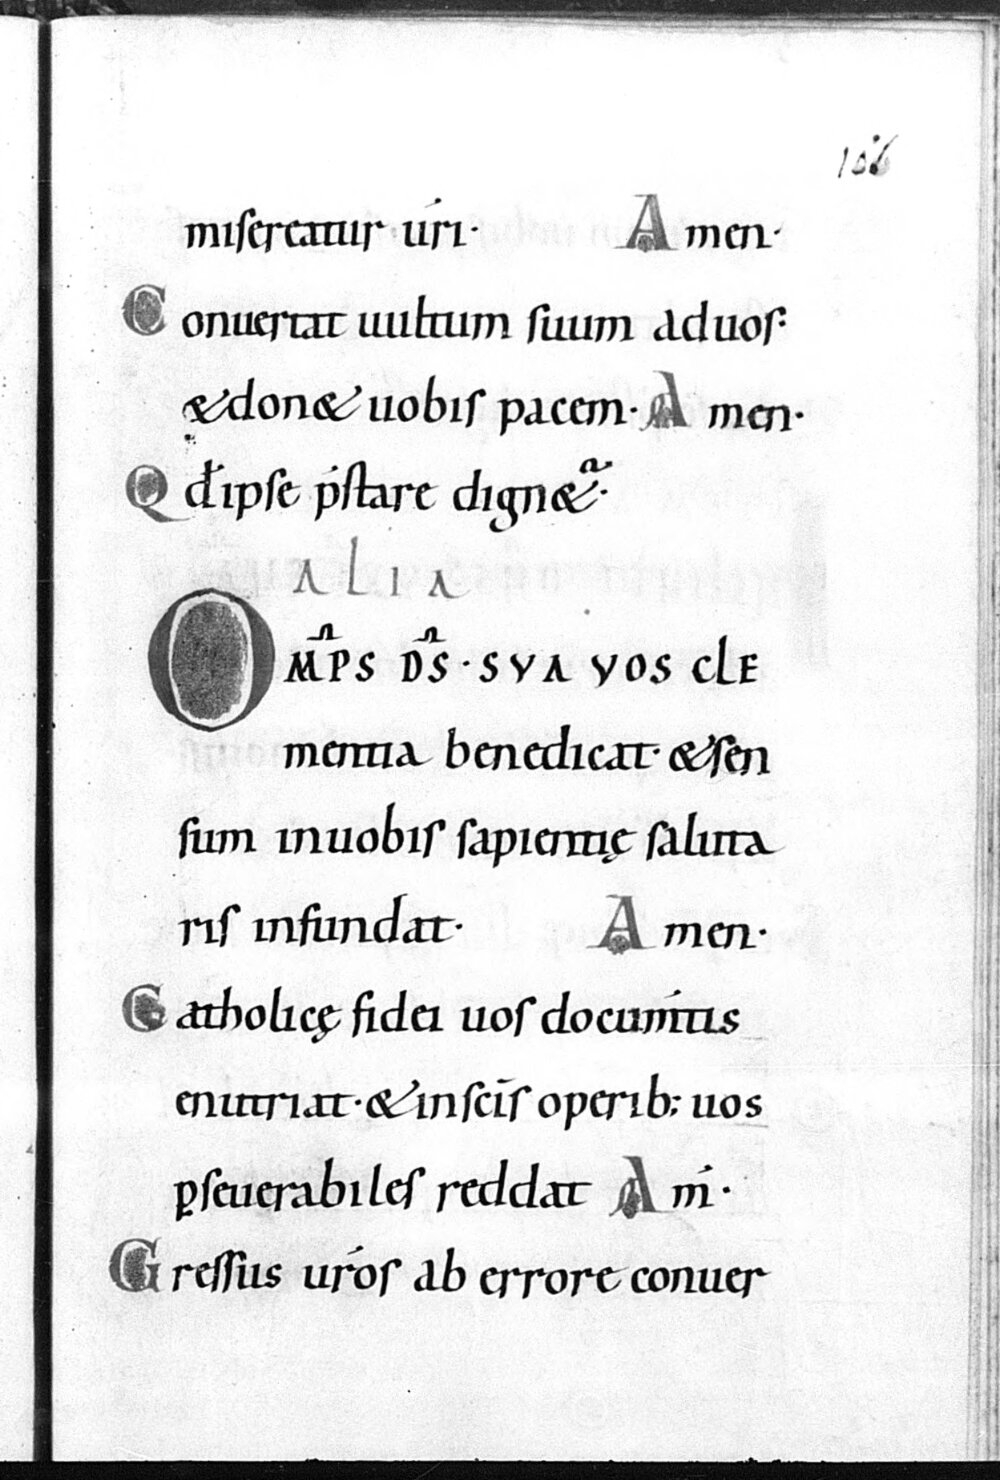 106
misereatur uŕi· Amen·
Conuertat uultum suum aduos:
&don& uobis pacem· Amen·
Qđipse p̄stare dign&ᵃ·
ALIA
OMP̄S DS̄· SVA VOS CLE
mentia benedicat· &sen
sum inuobis sapientię saluta
ris infundat· Amen·
Catholicę fidei uos documt́is
enutriat· &inscīs operib; uos
ꝑseuerabiles reddat Am̄·
Gressus uŕos ab errore conuer